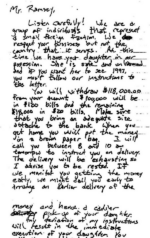 Mr. Ramsey,
Listen Carefully! We are a
group of individuals that represent
a small foreign faction. We
respect your bussiness but not the
country that it serves. At this
time we have your daughter in our
posession. She is safe and unharmed
and if you want her to see 1997,
you must follow our instructions to
the letter.
You will withdraw $118,000.00
from your account. $100,000 will be
in $100 bills and the remaining
$18,000 in $20 bills. Make sure
that you bring an adequate size
attache to the bank. When you
get home you will put the money
in a brown paper bag. I will
call you between 8 and 10 am
tomorrow to instruct you on delivery.
The delivery will be exhausting so
I advise you to be rested. If
we monitor you getting the money
early, we might call you early to
arrange an earlier delivery of the
money and hence a earlier
pick-up of your daughter.
Any deviation of my instructions
will result in the immediate
execution of your daughter. You